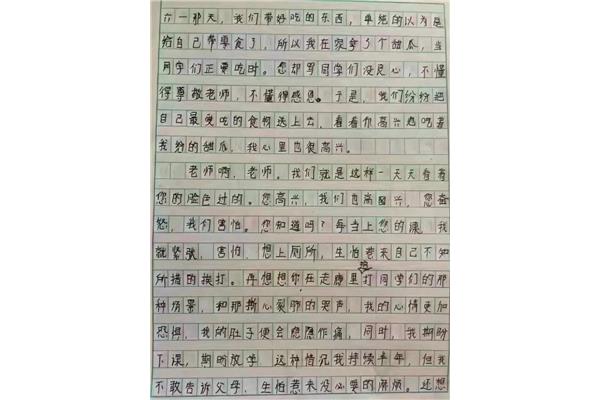 六一那天，我们带好吃的东西，单纯的以为是
给自己带零食了，所以我在家拿了个甜瓜，当
同学们正要吃时。您却骂同学们没良心，不懂
得尊敬老师，不懂得感恩。于是，我们纷纷把
自己最爱吃的食物送上去，看着你高兴地吃着
我给的甜瓜，我心里也很高兴。
老师啊，老师。我们就是这样一天天看着
您的脸色过的。您高兴，我们也高兴，您奋
怒，我们害怕。您知道吗？每当上您的课，我
就紧张，害怕，想上厕所，生怕惹来自己不知
所措的挨打。再想想你在走廊里揍打同学们的那
种情景，和那撕心裂肺的哭声，我的心情更加
恐惧，我的肚子便会隐隐作痛，同时，我期盼
下课，期盼放学 这种情况我持续半年，但我
不敢告诉父母、生怕惹来没必要的麻烦。还想